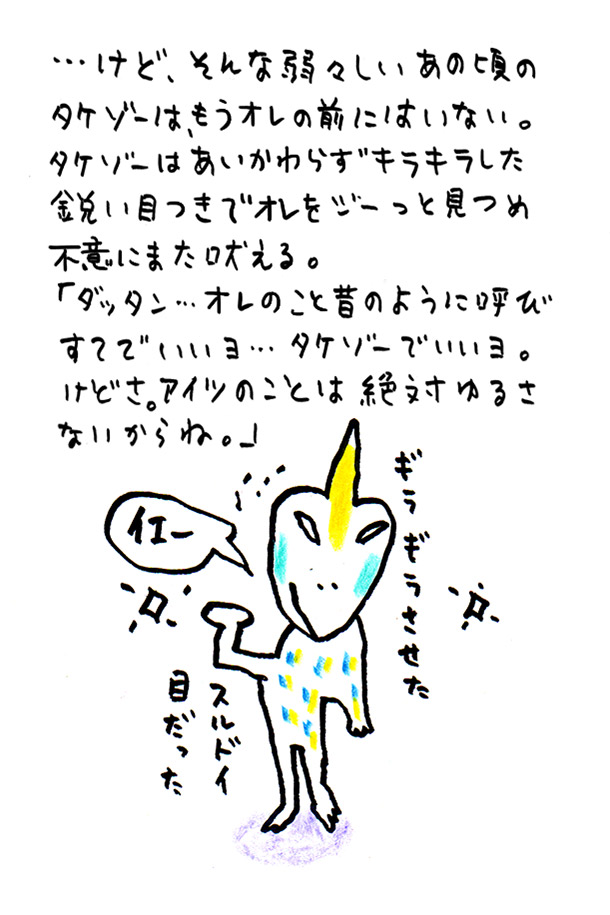 …けど、そんな弱々しいあの頃の
タケゾーは、もうオレの前にはいない。
タケゾーはあいかわらずキラキラした
鋭い目つきでオレをジーっと見つめ
不意にまた吠える。
「ダッタン…オレのこと昔のように呼び
すてでいいヨ…タケゾーでいいヨ。
けどさ。アイツのことは絶対ゆるさ
ないからね。」
イエー
ギラギラさせた
スルドイ
目だった